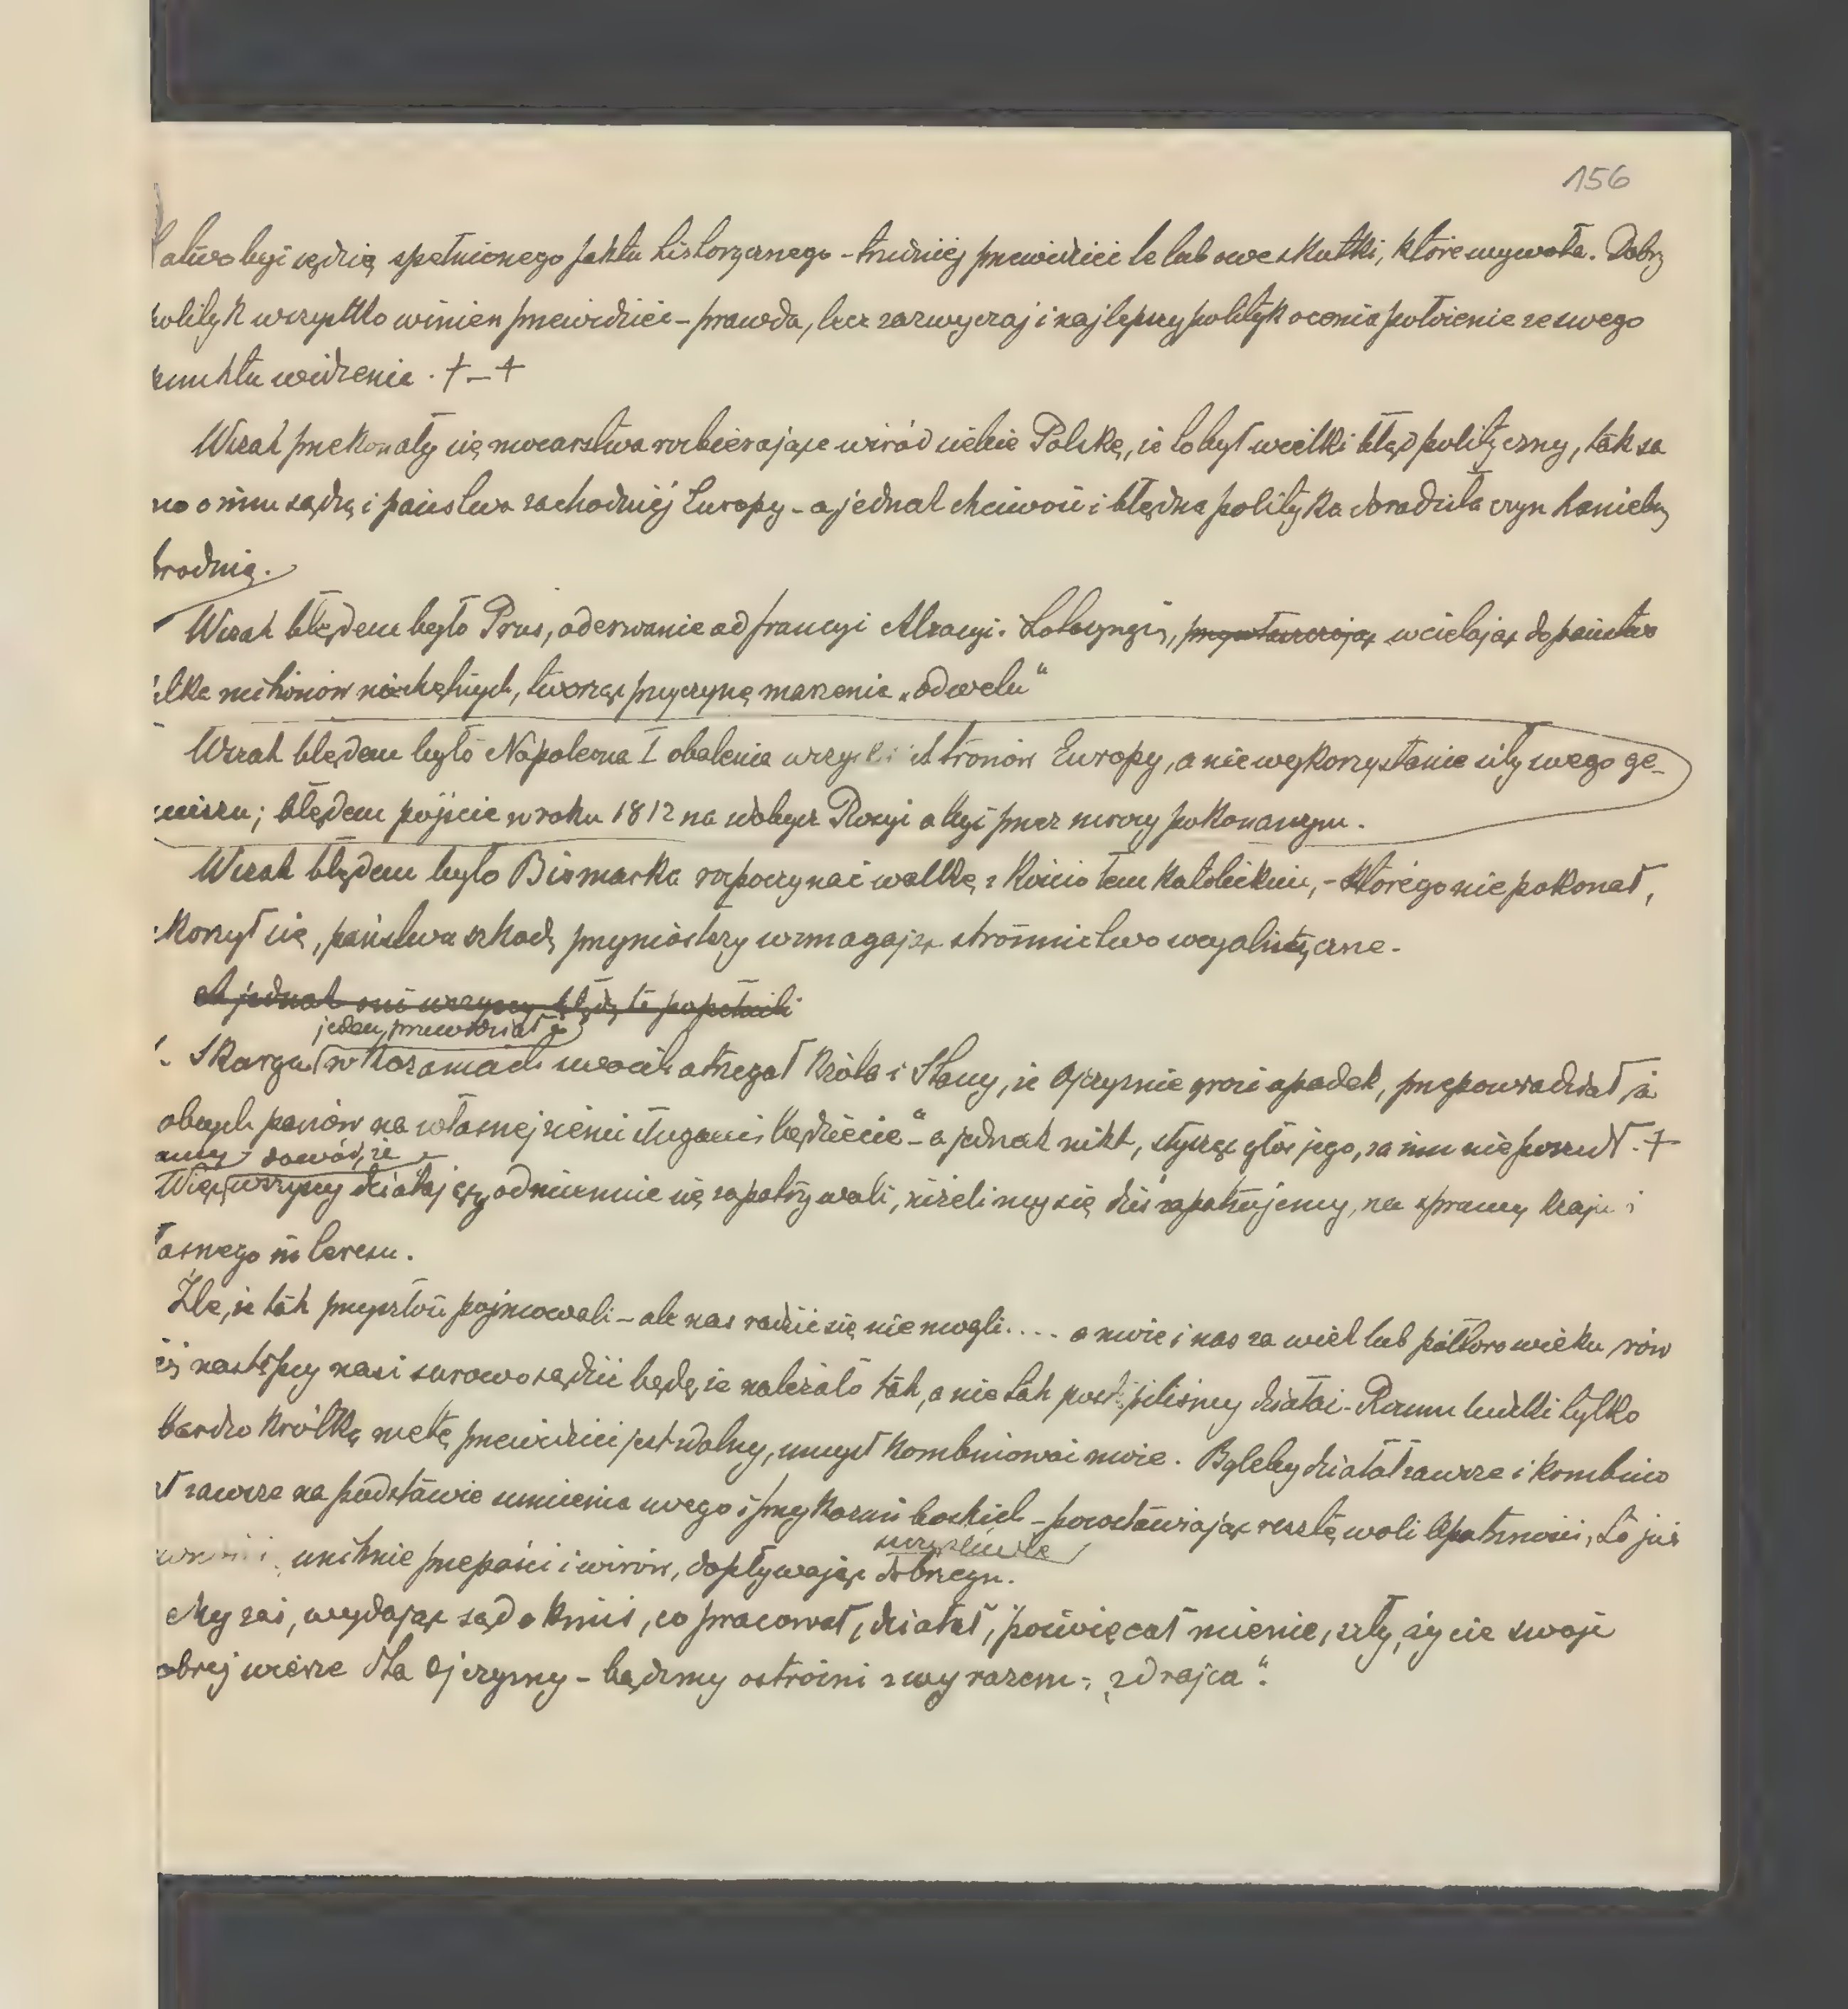 156
Łatwo być sędzią spełnionego faktu historycznego – trudniej przewidzieć te lub owe skutki, które wywoła. Dobry
polityk wszystko winien przewidzieć – prawda, lecz zazwyczaj i najlepszy polityk ocenia położenie ze swego
punktu widzenia. + – +
Wszak przekonały się mocarstwa rozbierające wśród siebie Polskę, że to był wielki błąd polityczny, tak sa
mo o niem sądzą i państwa zachodniéj Europy – a jednak chciwość i błędna polityka doradziła czyn haniebny
zbrodnią.
Wszak błędem było Prus, oderwanie od Francyi Alzacyi i Lotaryngii, przywłaszczając wcielając do państwa
kilka milionów niechętnych, tworząc przyczynę marzenia „odwetu"
Wszak błędem było Napoleona I obalenie wszystkich tronów Europy, a nie wykorzystanie siły swego ge-
niuszu; błędem pójście w roku 1812 na zdobycz Rosyi a być przez mrozy pokonanym.
Wszak błędem było Bismarka rozpoczynać walkę z Kościołem katolickim, – którego nie pokonał,
ukorzył się, państwu szkodę przyniósłszy wzmagając stronnictwo socyalistyczne.
A jednak oni wszyscy błędy te popełnili
jeden, przewidział
Skarga w kazaniach swoich ostrzegał Króla i Stany, że Ojczyźnie grozi upadek, przepowiadział, że
obcych panów na własnej ziemi sługami będziecie" – a jednak nikt, słysząc głos jego, za nim nie poszedł. +
mamy dowód, że
Więc wszyscy działający odmiennie się zapatrywali, niżeli my się dziś zapatrujemy, na sprawy kraju i
własnego interesu.
Źle, że tak przyszłość pojmowali – ale nas radzić się nie mogli.... a może i nas za wiek lub półtora wieku rów
nież następcy nasi surowo sądzić będą, że należało tak, a nie tak postąpiliśmy działać. Rozum ludzki tylko
bardzo krótką metę przewidzieć jest zdolny, umysł kombinować może. Byleby działał zawsze i kombino
wał zawsze na podstawie sumienia swego i przykazań boskich – pozostawiając resztę woli Opatrzności, to już
uniknie przepaści i wirów, dopływając dobrzegu.
szczęśliwie
My zaś, wydając sąd o kimś, co pracował, działał, poświęcał mienie, siły, życie swoje
dobrej wierze dla Ojczyzny – bądźmy ostrożni z wyrazem: „zdrajca".